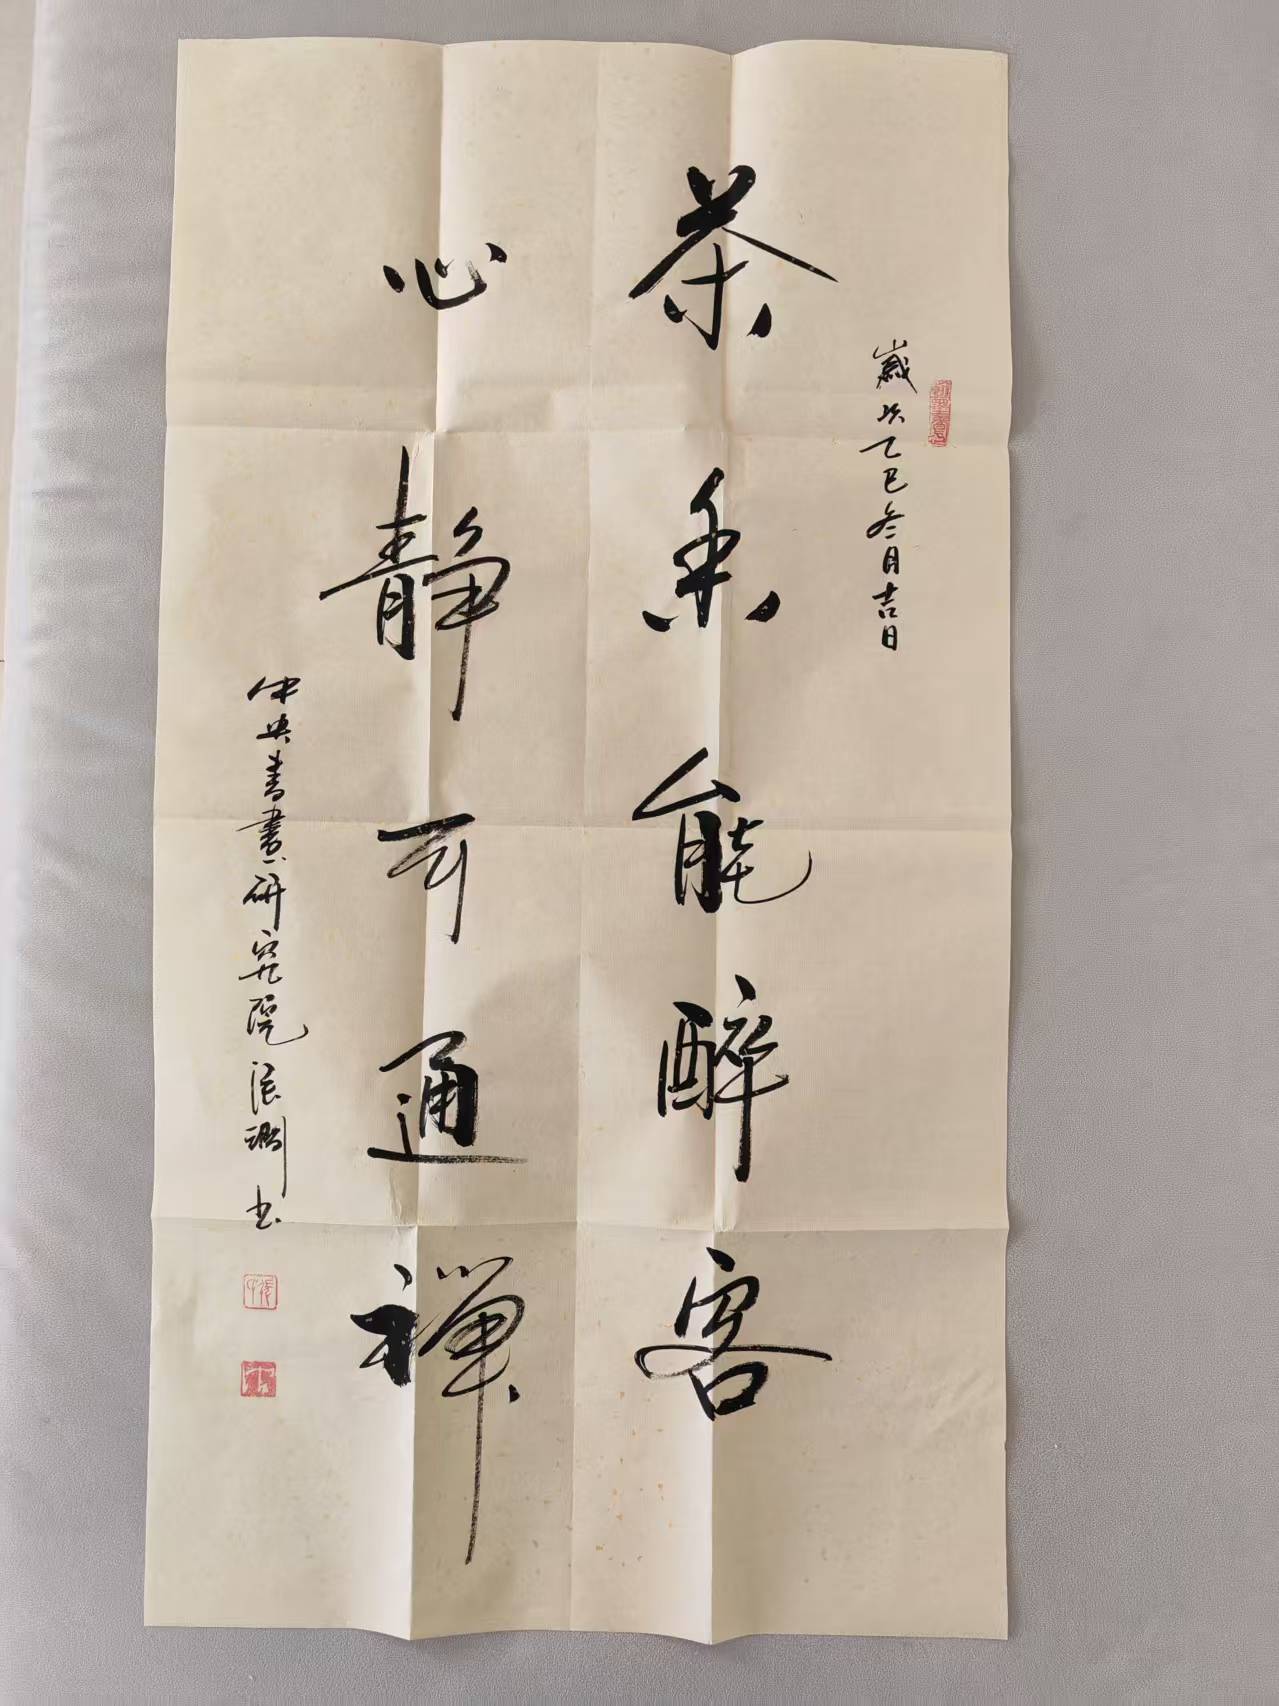 歲次乙巳冬月吉日
茶香能醉客
心静可通禅
中央書畫研究院張潮书